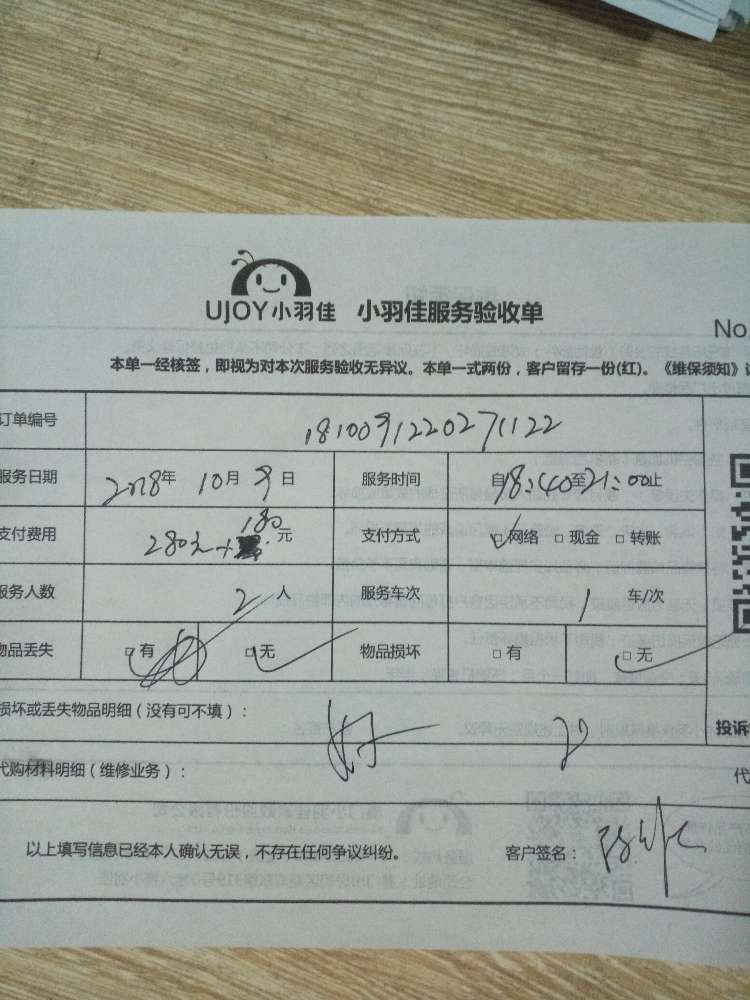 UJOY小羽佳 小羽佳服务验收单
No.
本单一经核签，即视为对本次服务验收无异议。本单一式两份，客户留存一份(红)。《维保须知》
订单编号 1810091220271122
服务日期 2018年 10月 9日 服务时间 自18:40至21:00止
支付费用 280元+180元 支付方式 □网络 □现金 □转账
服务人数 2人 服务车次 1 车/次
物品丢失 □有 □无 物品损坏 □有 □无
损坏或丢失物品明细（没有可不填）： 好
投诉
代购材料明细（维修业务）： 代
以上填写信息已经本人确认无误，不存在任何争议纠纷。 客户签名：